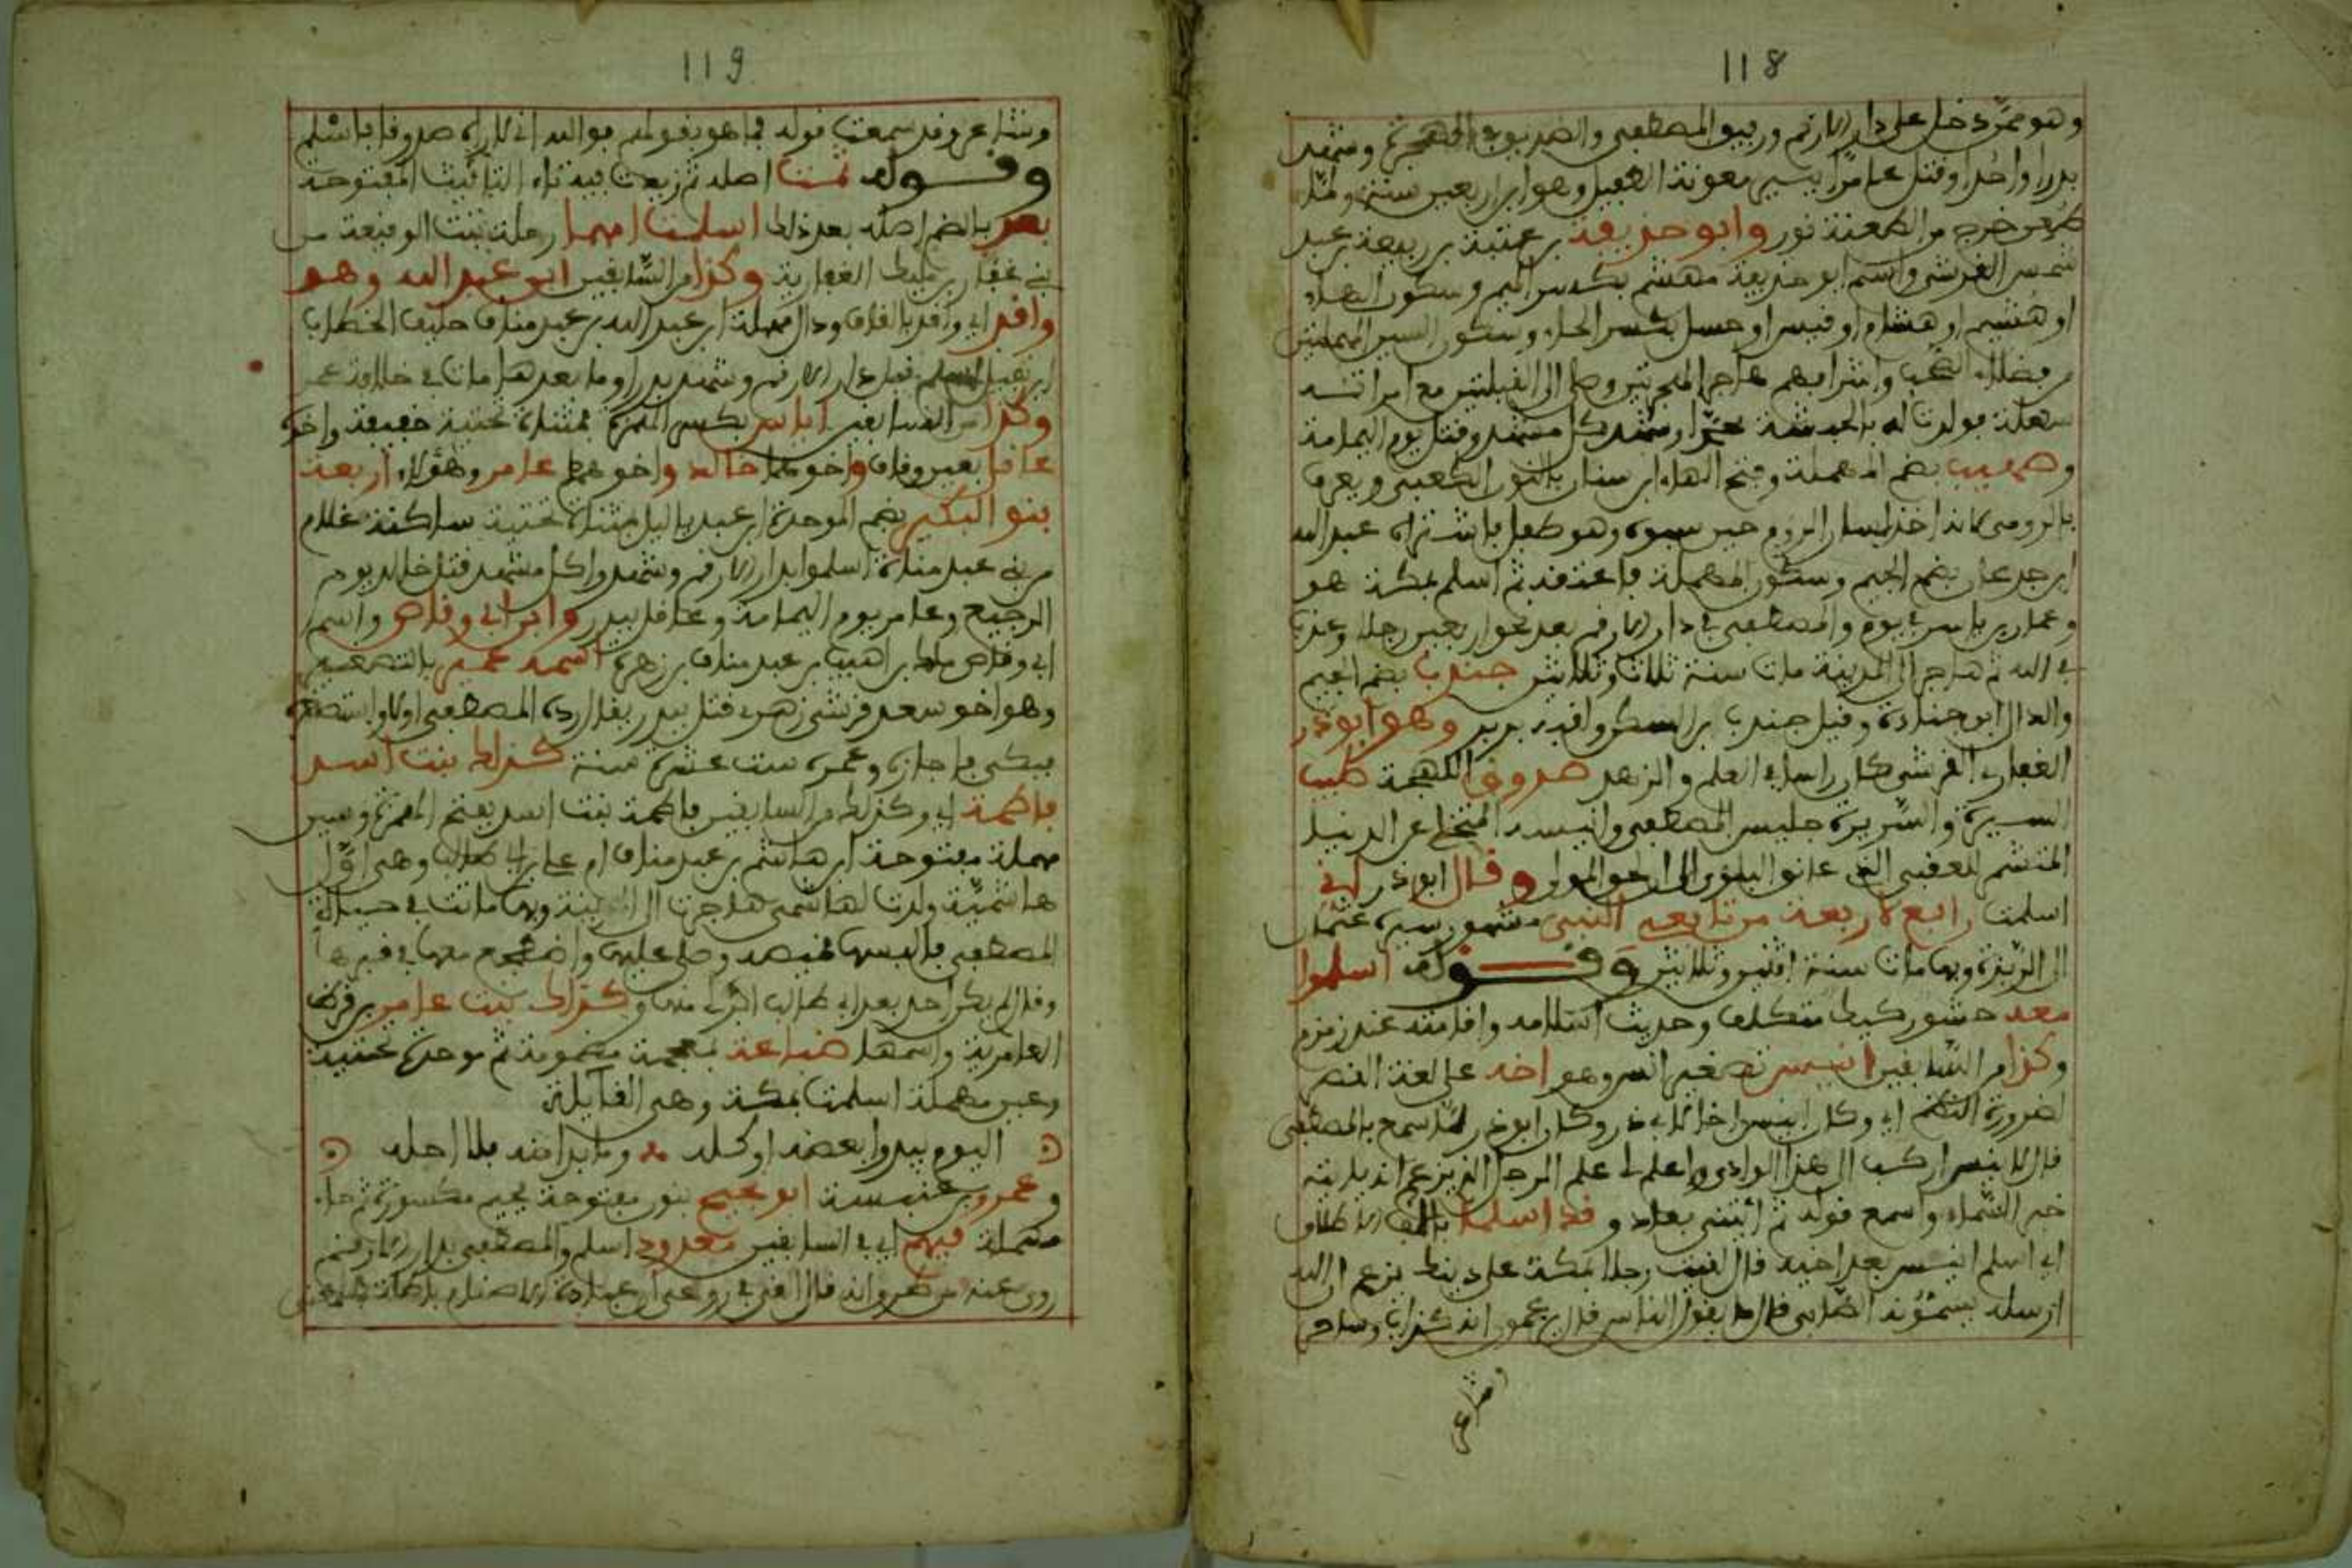 118
وهو ممن دخل على دار الارقم ورفيق المصطفى والصديق في الهجرة وشهد
بدرا واحدا وقتل عامرا ببير معونة الطفيل وهو ابن اربعين سنة ولما
طعن خرج من الطعنة نور وابو حذيفة بن عتبة بن ربيعة بن عبد
شمس القرشي واسم ابو حذيفة مهشم بكسر الميم وسكون الهاء
او هشيم او هشام او قيس او حسل بكسر الحاء وسكون السين المهملتين
من فضلاء الصحب واشرافهم هاجر الهجرتين وصلى الى القبلتين مع امراته
سهلة فولدت له بالحبشة محمدا وشهد كل مشهد وقتل يوم اليمامة
وصهيب بضم المهملة وفتح الهاء ابن سنان بالنون الكعبي ويعرف
بالرومي لانه اخذ لسان الروم حين سبوه وهو طفل فاشتراه عبد الله
ابن جدعان بضم الجيم وسكون المهملة فاعتقه ثم اسلم بمكة هو
وعمار بن ياسر في يوم والمصطفى في دار الارقم بعد نحو اربعين رجلا وعذب
في الله ثم هاجر الى المدينة مات سنة ثلاث وثلاثين جندب بضم الجيم
والدال ابن جنادة وقيل جندب بن السكن وقيل برير وهو ابو ذر
الغفاري القرشي كان راسا في العلم والزهد صدوق اللهجة طيب
السيرة والسريرة جليس المصطفى وانيسه المتخلي عن الدنيا
المتشمر للعقبى الذي عانق البلوى الى ان لحق المولى وقال ابو ذر اني
اسلمت رابع لاربعة من تابعي النبي مشهور سيره عثمان
الى الربذة وبها مات سنة اثنين وثلاثين وقوله اسلموا
معه حشو ركيك متكلف وحديث اسلامه واقامته عند زمزم
وكذا من السابقين انيس تصغير انس وهو اخه على لغة القصر
لضرورة النظم اي وكان انيس اخا لابي ذر وكان ابو ذر لما سمع بالمصطفى
قال لانيس اركب الى هذا الوادي واعلم لي علم الرجل الذي يزعم انه ياتيه
خبر السماء واسمع قوله ثم ائتني بعاد و قد اسلما بالف الاطلاق
اي اسلم انيس بعد اخيه قال لقيت رجلا بمكة على دينك يزعم ان الله
ارسله يسمونه الصابي قال ما يقول الناس قال يزعمون انه كذاب وساحر
وشاعر
119
وشاعر وقد سمعت قوله فما هو بقولهم فوالله اني لاراه صدوقا فاسلم
وقوله ثمت اصله ثم زيدت فيه تاء التانيث المفتوحة
بعد بالضم اصله بعد ذلك اسلمت امهما رملة بنت الوقيعة من
بني غفار بن مليك الغفارية وكذا من السابقين ابو عبد الله وهو
واقد اي واقد بالقاف ودال مهملة ابن عبد الله بن عبد مناف حليف الخطاب
ابن نفيل اسلم قبل دار الارقم وشهد بدرا وما بعدها مات في خلافة عمر
وكذا من السابقين اياس بكسر الهمزة بمثناة تحتية خفيفة واخوه
عاقل بعين وقاف واخوهما خالد واخوهم عامر وهؤلاء اربعة
بنو البكير بضم الموحدة ابن عبد ياليل بمثناة تحتية ساكنة غلام
من بني عبد مناة اسلموا بدار الارقم وشهدوا كل مشهد قتل خالد يوم
الرجيع وعامر يوم اليمامة وعاقل ببدر وابن ابي وقاص واسم
ابي وقاص مالك بن اهيب بن عبد مناف بن زهرة اسمه عمير بالتصغير
وهو اخو سعد قرشي زهري قتل ببدر يقال رده المصطفى اولا واستصغره
فبكى فاجازه وعمره ست عشرة سنة كذاك بنت اسد
فاطمة اي وكذلك من السابقين فاطمة بنت اسد بفتح الهمزة وسين
مهملة مفتوحة ابن هاشم بن عبد مناف ام علي بن ابي طالب وهي اول
هاشمية ولدت لهاشمي هاجرت الى المدينة وبها ماتت في حياة
المصطفى فالبسها قميصه وصلى عليها واضطجع معها في قبرها
وقال لم يكن احد بعد ابي طالب ابر لي منها وكذاك بنت عامر بن قرط
العامرية واسمها ضباعة بمعجمة مضمومة ثم موحدة تحتية
وعين مهملة اسلمت بمكة وهي القايلة
اليوم يبدو بعضه او كله وما بدا منه فلا احله
وعمرو بن عنبسة ابو نجيح بنون مفتوحة فجيم مكسورة ثم حاء
مهملة فيهم اي في السابقين معدود اسلم والمصطفى بدار الارقم
روي عنه من طرق انه قال القي في روعي ان عبادة الاصنام باطلة